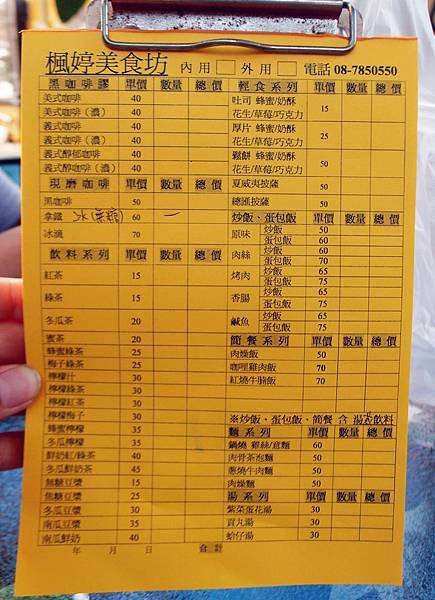 楓婷美食坊 內用□ 外用□ 電話 08-7850550
黑咖啡膠 單價 數量 總價
美式咖啡 40
美式咖啡（濃） 40
義式咖啡 40
義式咖啡（濃） 40
義式醇郁咖啡 40
義式醇咖啡（濃） 40
現磨咖啡 單價 數量 總價
黑咖啡 50
拿鐵 冰 60 一
冰滴 70
飲料系列 單價 數量 總價
紅茶 15
綠茶 15
冬瓜茶 20
蜜茶 20
蜂蜜綠茶 25
梅子綠茶 25
檸檬汁 30
檸檬綠茶 30
檸檬紅茶 30
檸檬梅子 30
蜂蜜檸檬 35
冬瓜檸檬 35
鮮奶紅/綠茶 40
冬瓜鮮奶茶 45
無糖豆漿 15
焦糖豆漿 25
冬瓜豆漿 30
南瓜豆漿 35
南瓜鮮奶 40
年 月 日 合計
輕食系列 單價 數量 總價
吐司 蜂蜜/奶酥
花生/草莓/巧克力 15
厚片 蜂蜜/奶酥
花生/草莓/巧克力 25
鬆餅 蜂蜜/奶酥
花生/草莓/巧克力 50
夏威夷披薩 50
總匯披薩 50
炒飯、蛋包飯 單價 數量 總價
原味 炒飯 50
蛋包飯 60
肉絲 炒飯 60
蛋包飯 70
烤肉 炒飯 65
蛋包飯 75
香腸 炒飯 65
蛋包飯 75
鹹魚 炒飯 65
蛋包飯 75
簡餐系列 單價 數量 總價
肉燥飯 50
咖哩雞肉飯 70
紅燒牛腩飯 70
※炒飯、蛋包飯、簡餐 含 湯飲料
麵系列 單價 數量 總價
鍋燒 雞絲/意麵 60
肉骨茶泡麵 50
蔥燒牛肉麵 50
肉燥麵 50
湯系列 單價 數量 總價
紫菜蛋花湯 30
貢丸湯 30
蛤仔湯 30